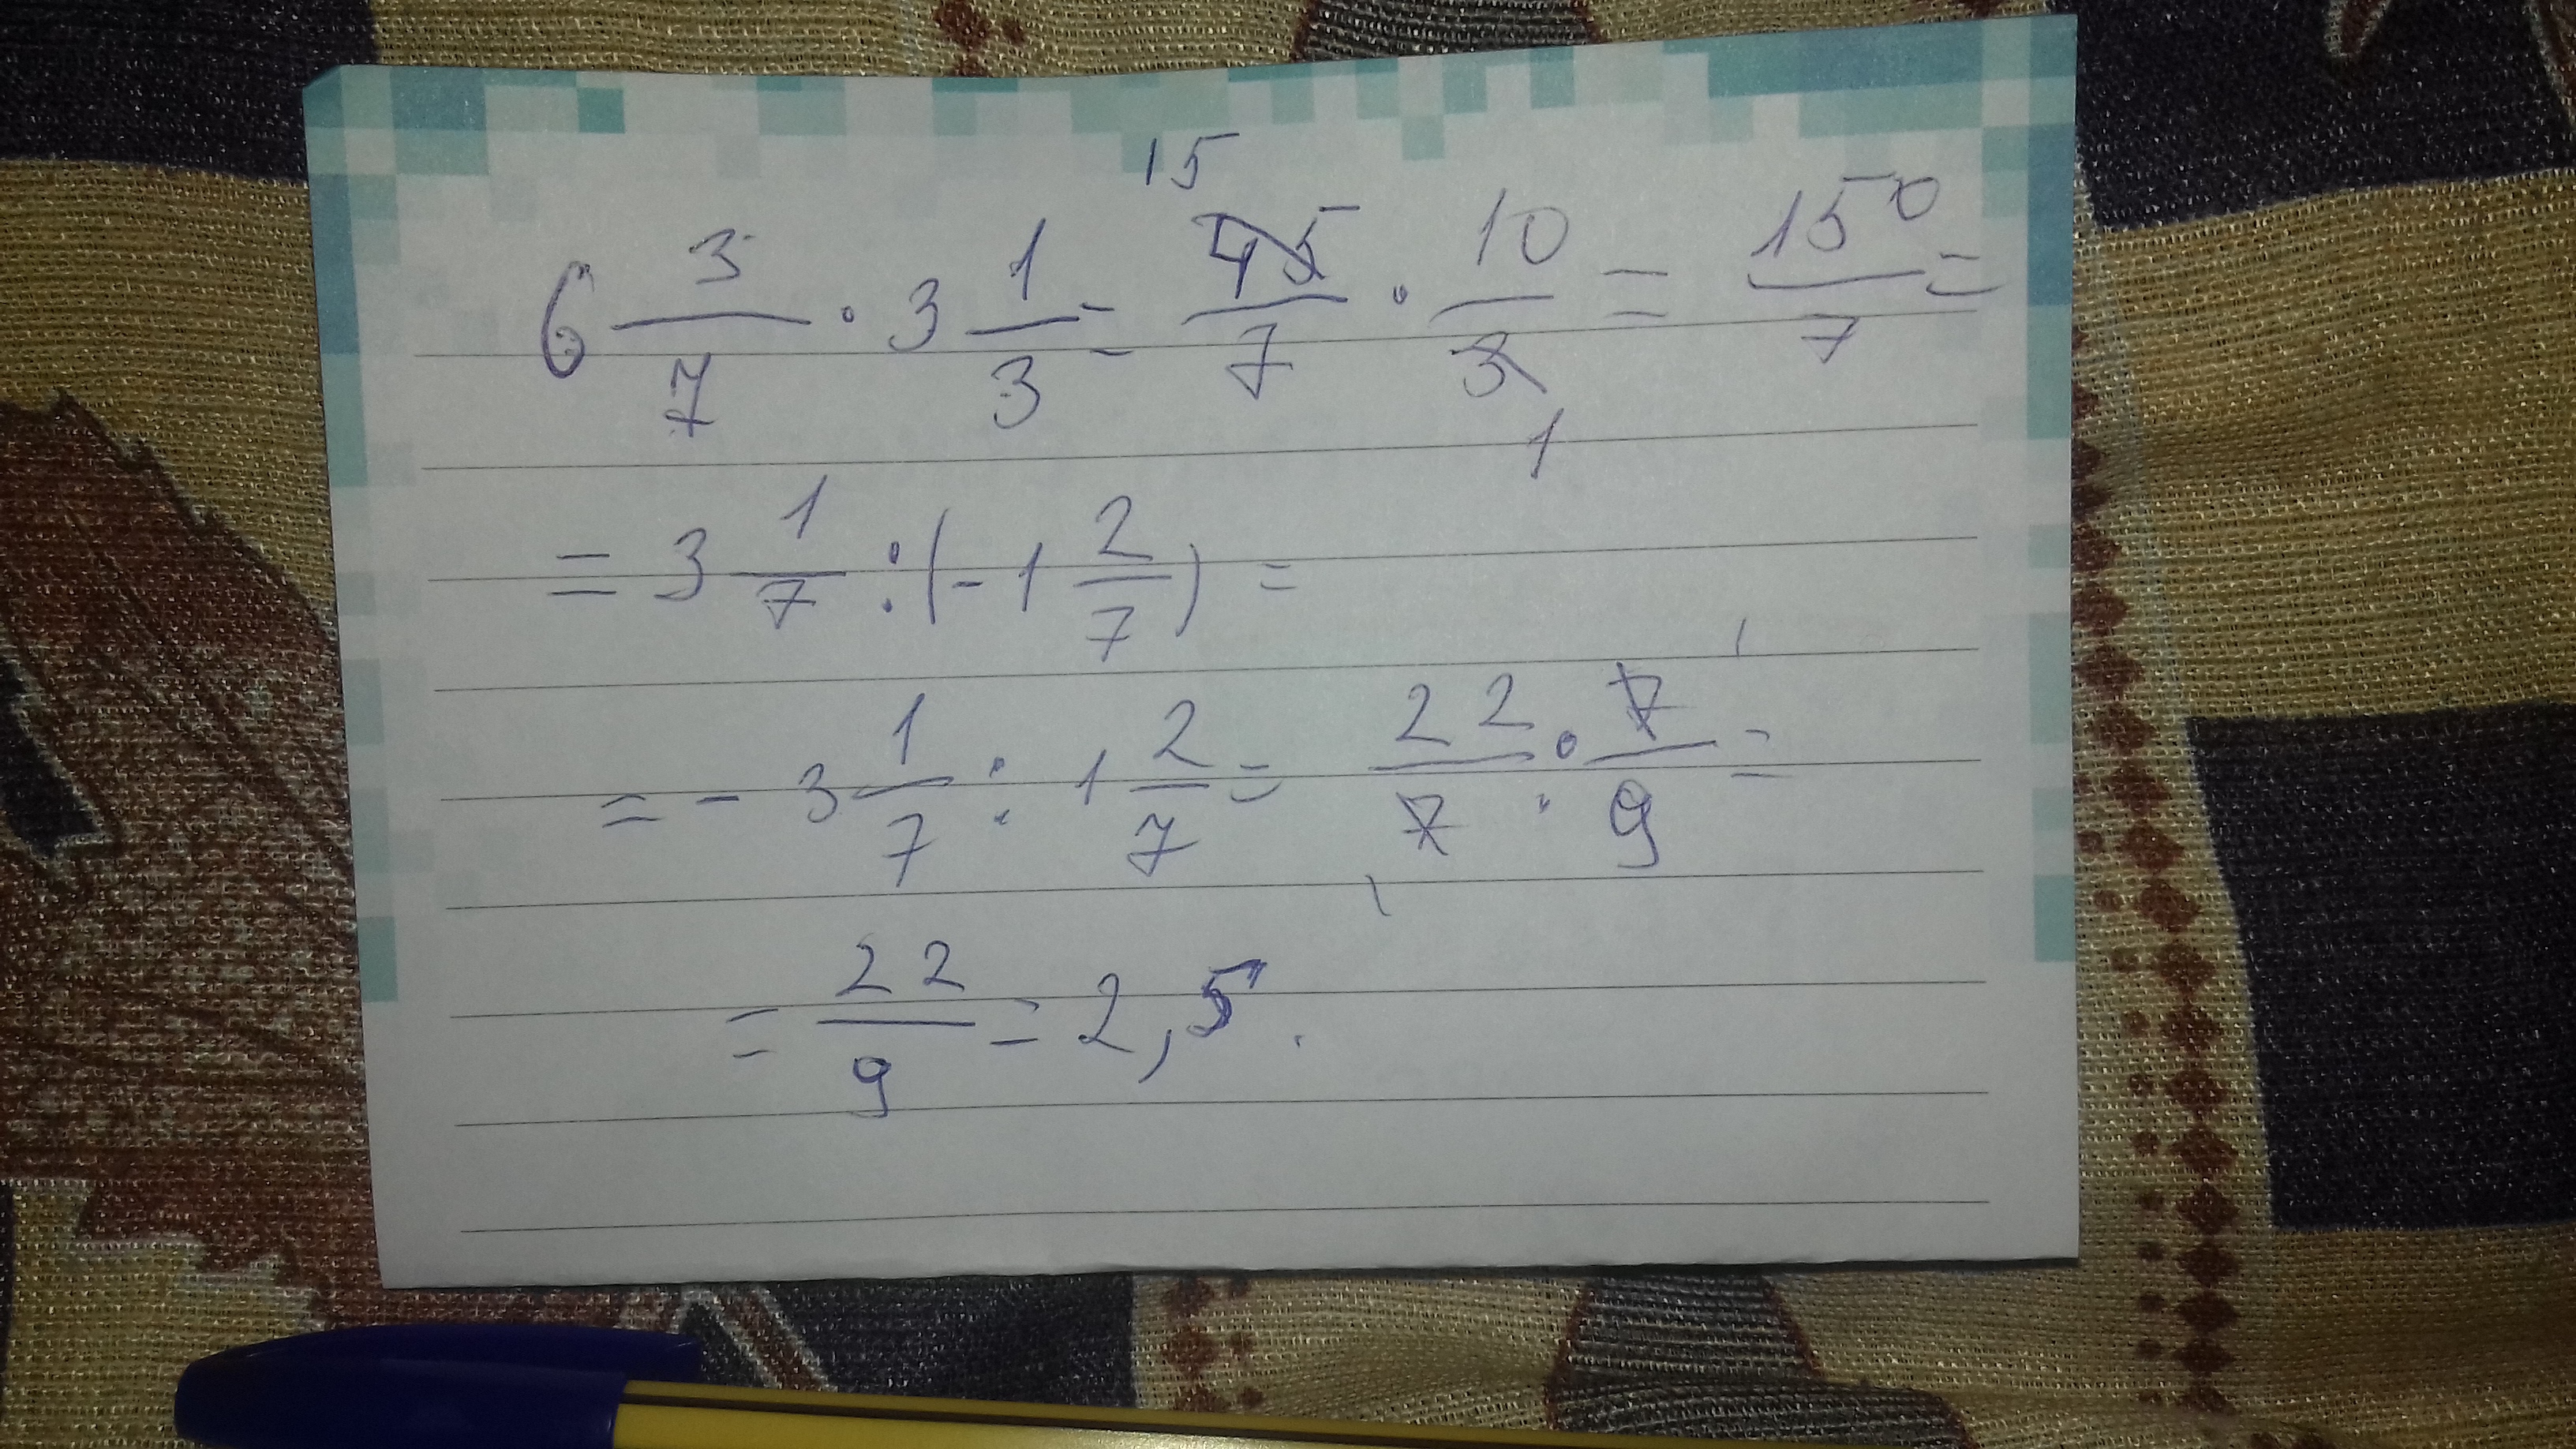 6 3/7 · 3 1/3 = 45/7 · 10/3 = 150/7 =
15
1
= 3 1/7 : (- 1 2/7) =
= - 3 1/7 : 1 2/7 = 22/7 · 7/9 =
1
1
= 22/9 = 2,5.